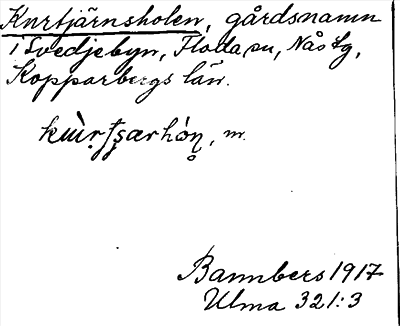 Knrtjärnsholen, gårdsnamn
i Svedjebyn, Floda sn, Nås tg,
Kopparbergs län.
m.
Bannbers 1917
Ulma 321:3